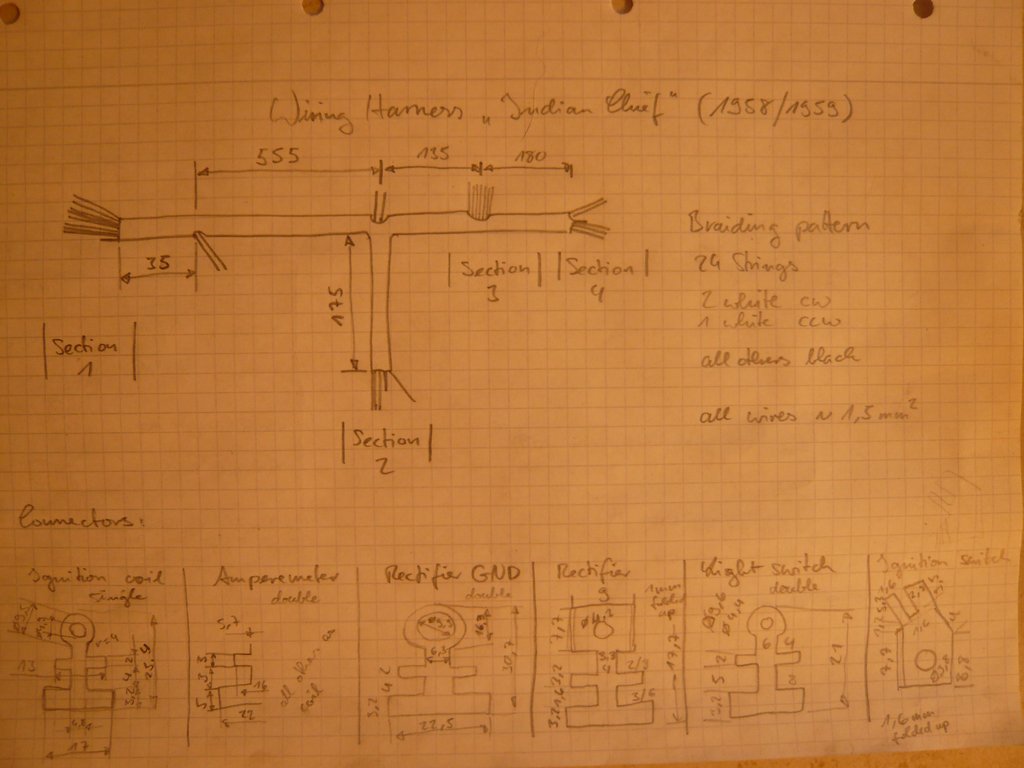 Wiring Harness „Indian Chief" (1958/1959)
555
135
180
35
175
Section
1
Section
2
Section
3
Section
4
Braiding pattern
24 Strings
2 white cw
1 white ccw
all others black
all wires ~ 1,5 mm²
Connectors:
Ignition coil
single
13
17
Amperemeter
double
5,7
16
22
Rectifier GND
double
6,3
30,7
3,2
4
2
22,5
Rectifier
1mm
folded
7,7
17,7
Light switch
double
Ø9,6
Ø4,4
6
4
21
Ignition switch
7,7
1,6
8,8
1,6 mm
folded up